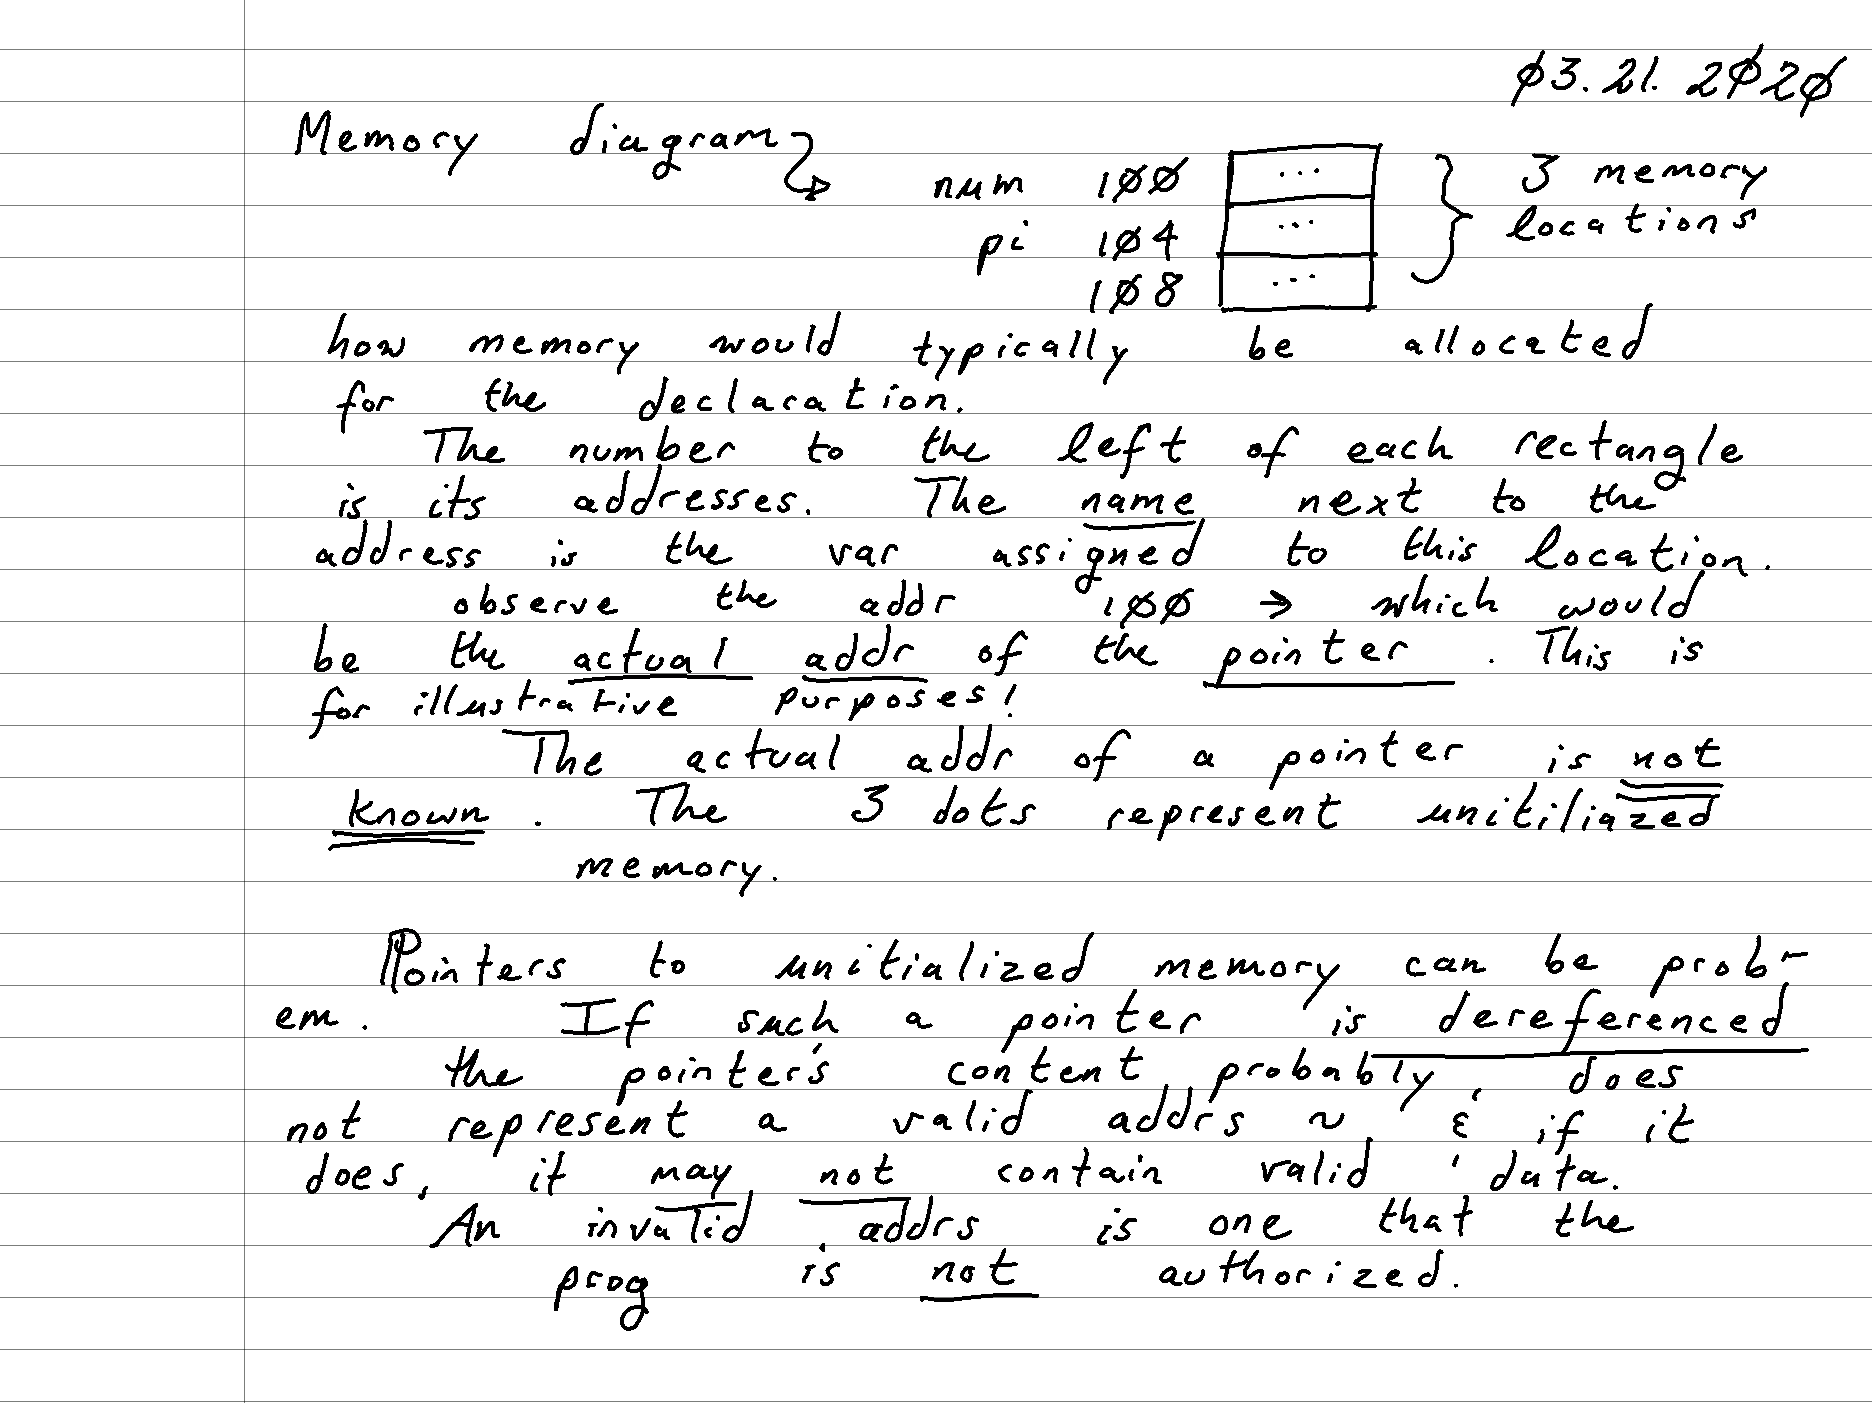 03.21.2020
Memory diagram
num 100 ... 3 memory
pi 104 ... locations
108 ...
how memory would typically be allocated
for the declaration.
The number to the left of each rectangle
is its addresses. The name next to the
address is the var assigned to this location.
observe the addr 100 → which would
be the actual addr of the pointer. This is
for illustrative purposes!
The actual addr of a pointer is not
known. The 3 dots represent unitiliazed
memory.
Pointers to unitialized memory can be prob-
em. If such a pointer is dereferenced
the pointer's content probably, does
not represent a valid addrs ~ & if it
does, it may not contain valid data.
An invalid addrs is one that the
prog is not authorized.